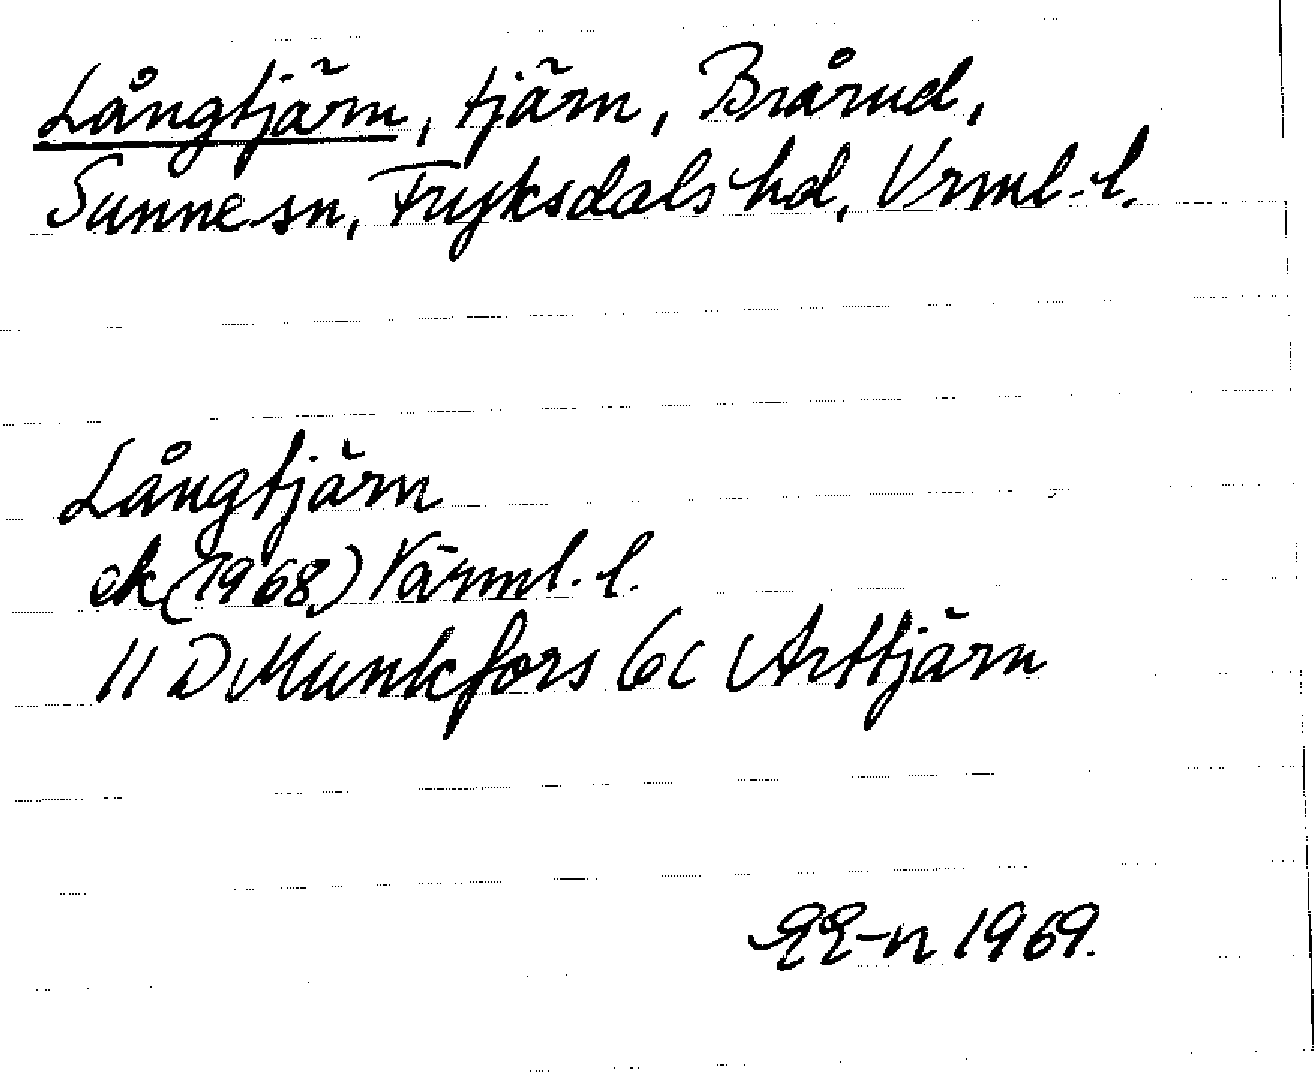 Långtjärn, tjärn, Brårud,
Sunne sn, Fryksdals hd, Vrml. l.
Långtjärn
ek (1968) Värml. l.
11 D Munkfors 6c Arttjärn
EE-n 1969.